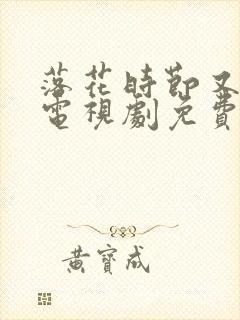 落花時節又
電視劇免費
黃寶成